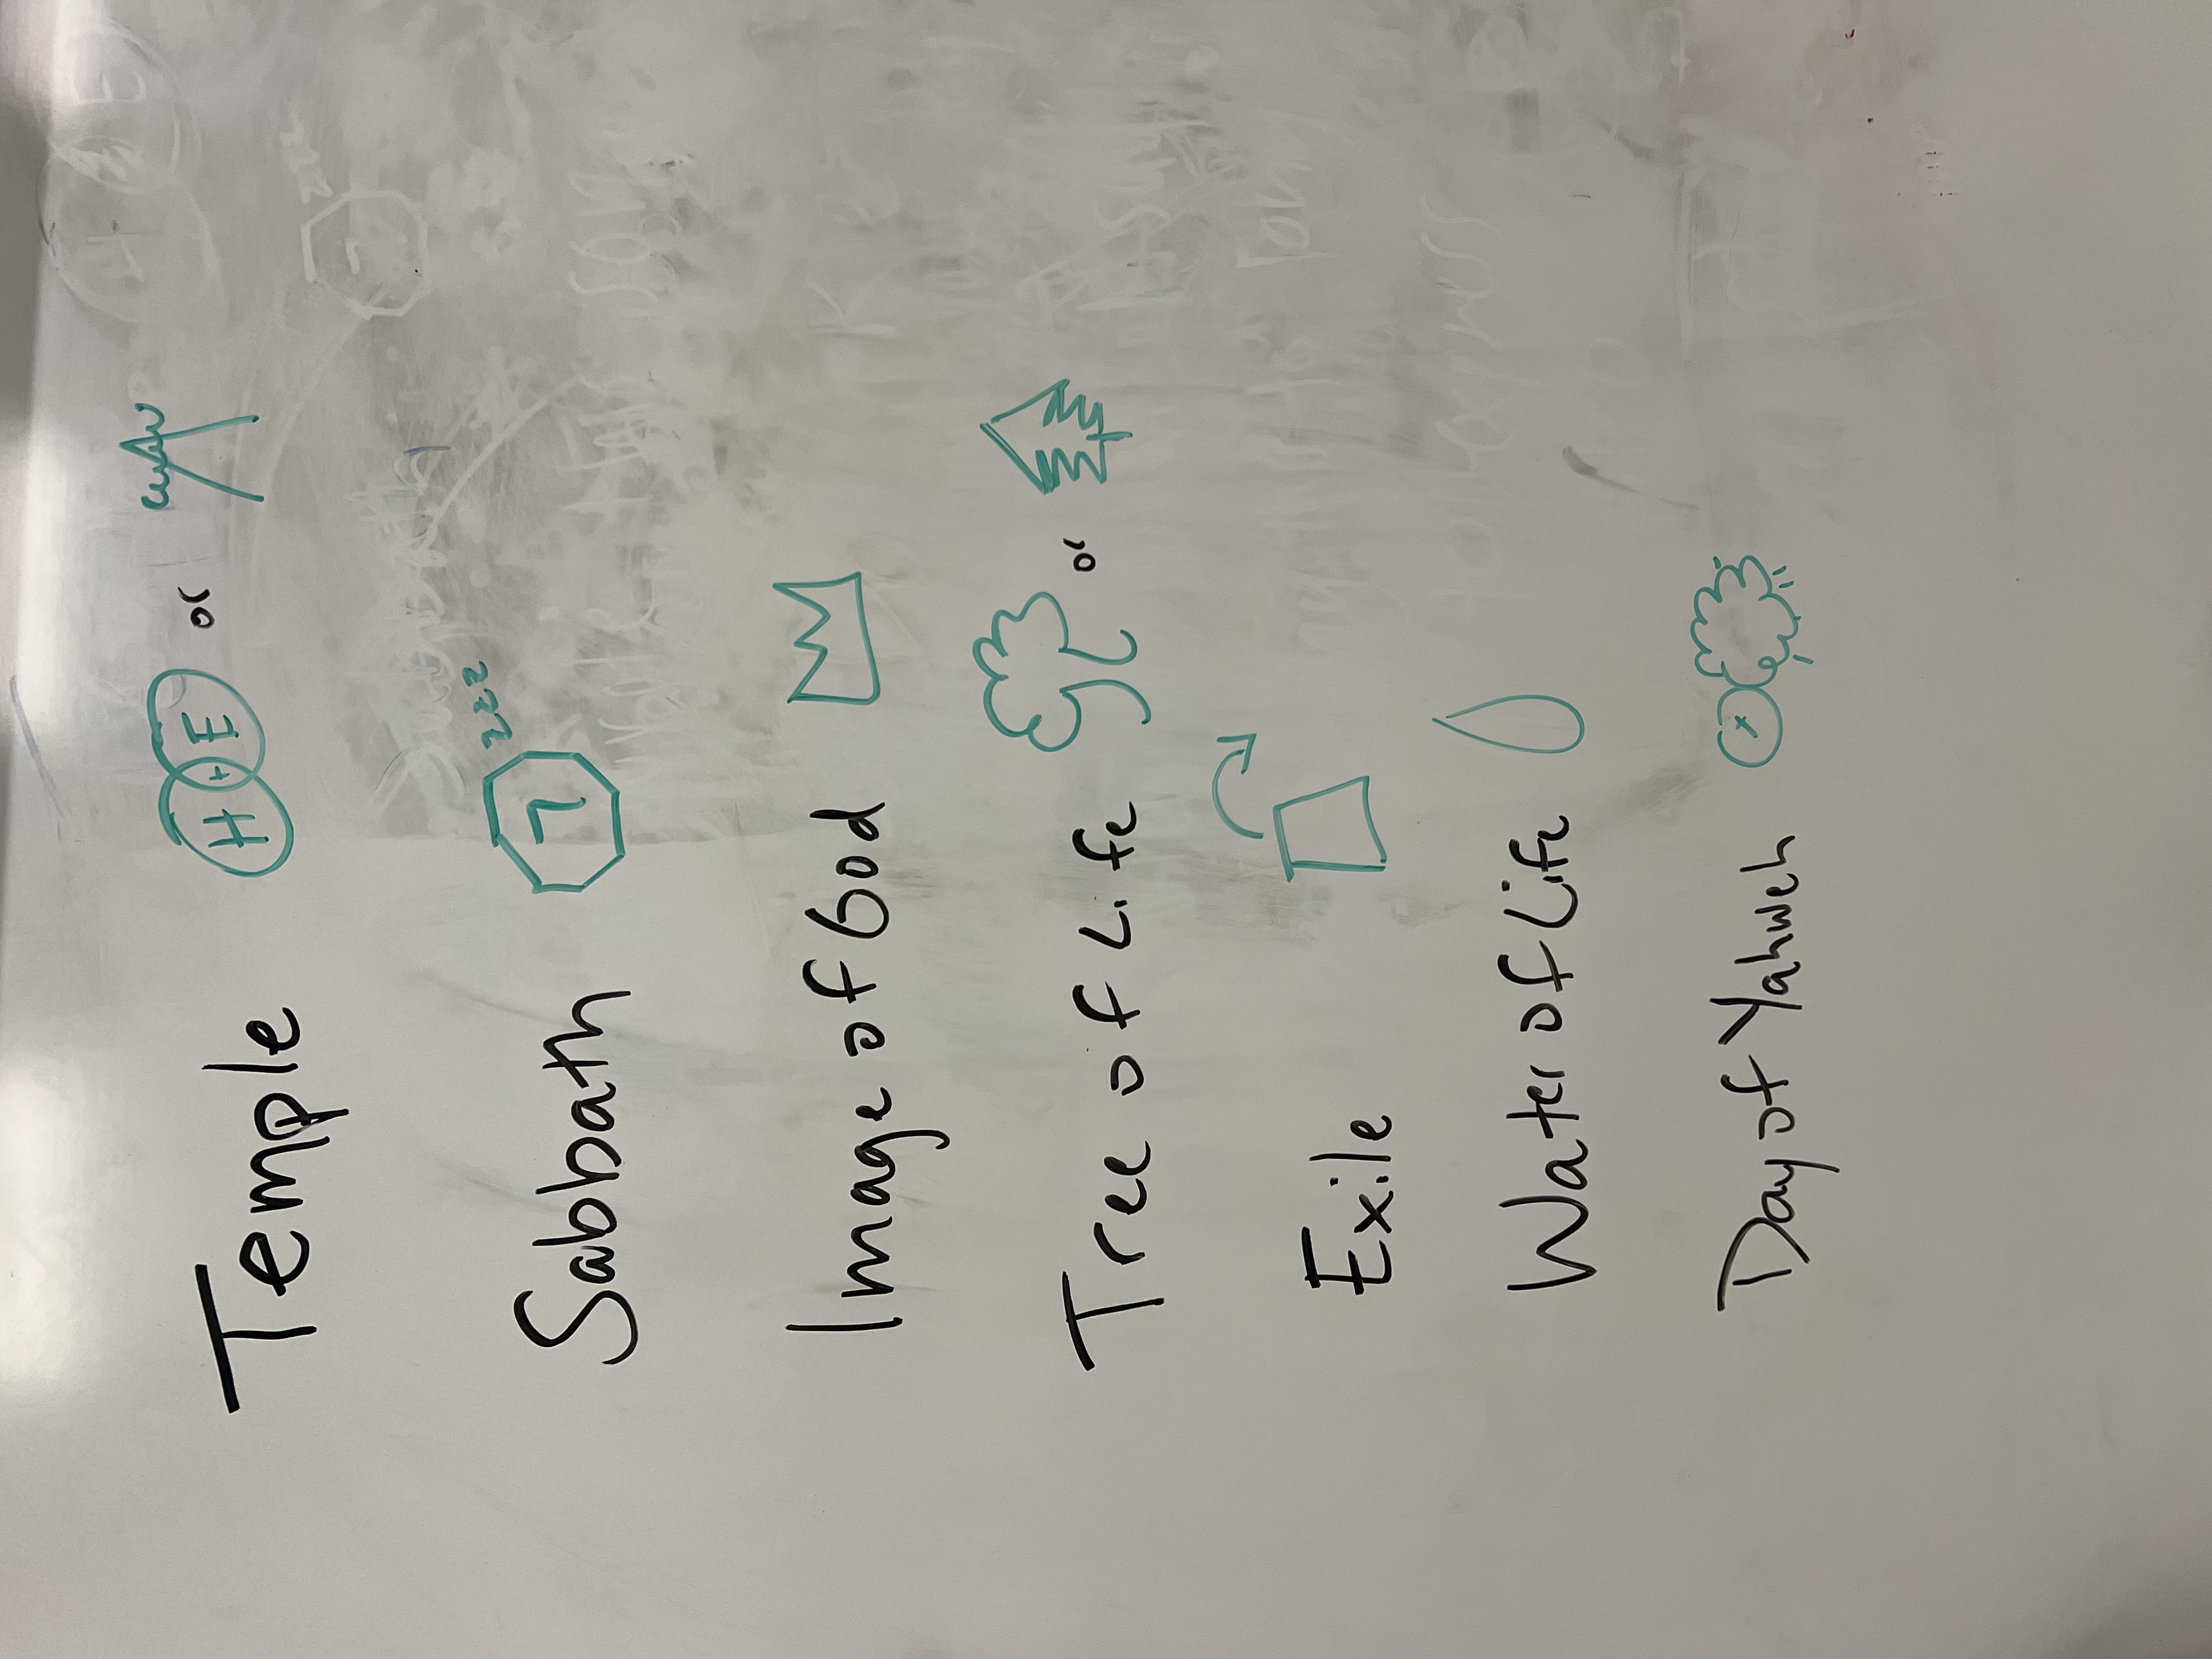 Temple H + E or
Sabbath 7 zzz
Image of God
Tree of Life or
Exile
Water of Life
Day of Yahweh x